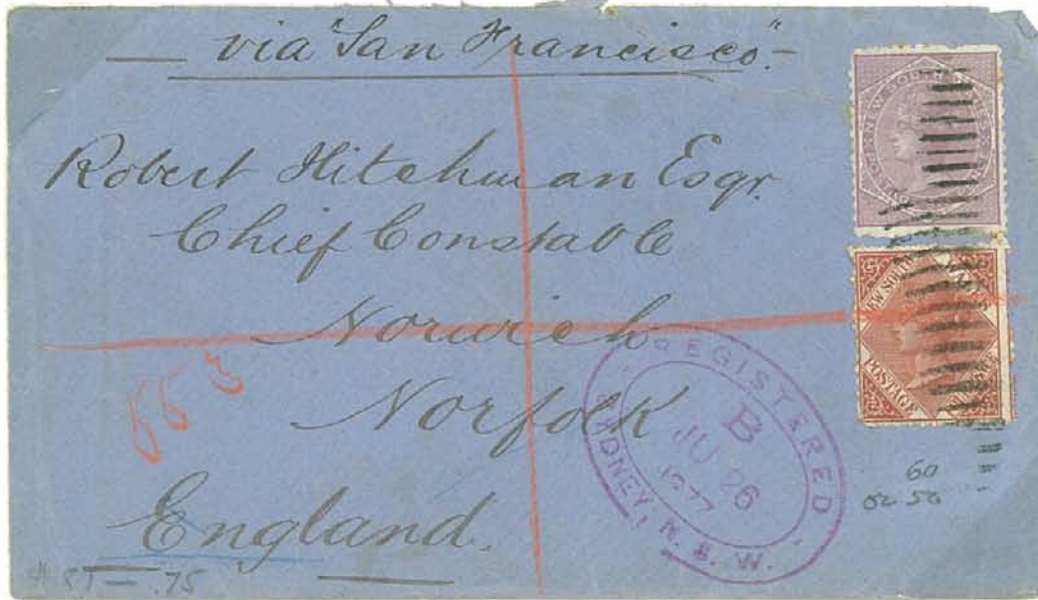 via "San Francisco"-
Robert Hitchman Esqr.
Chief Constable
Norwich
Norfolk
England.
663
REGISTERED
B
JU 26
1877
SYDNEY, N. S. W.
NEW SOUTH
NEW SOUTH WALES
POSTAGE
60